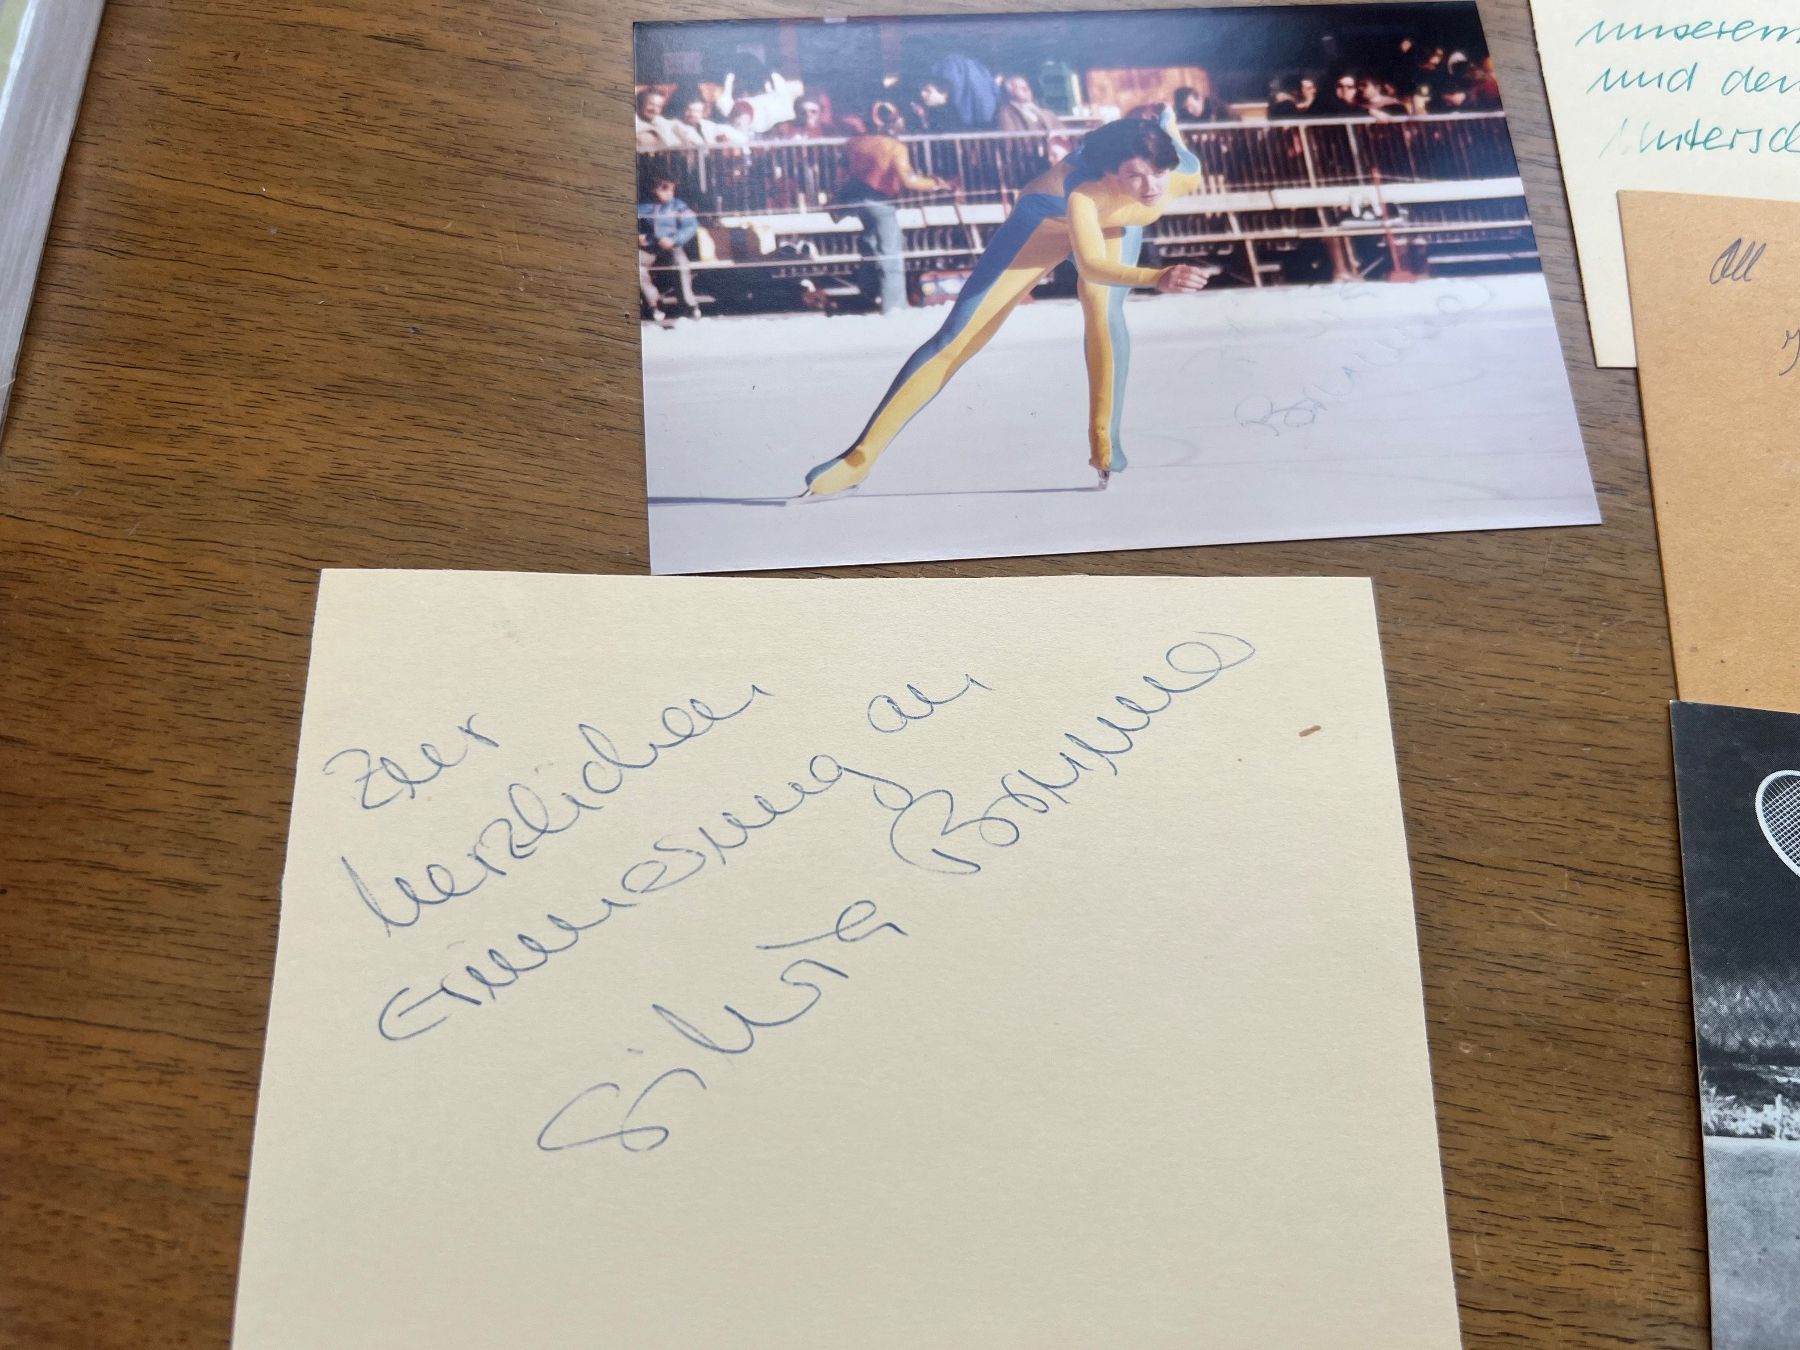 Brunner
unserem
und den
All
Zur
herzlichen
Erinnerung an
Silvia Brunner